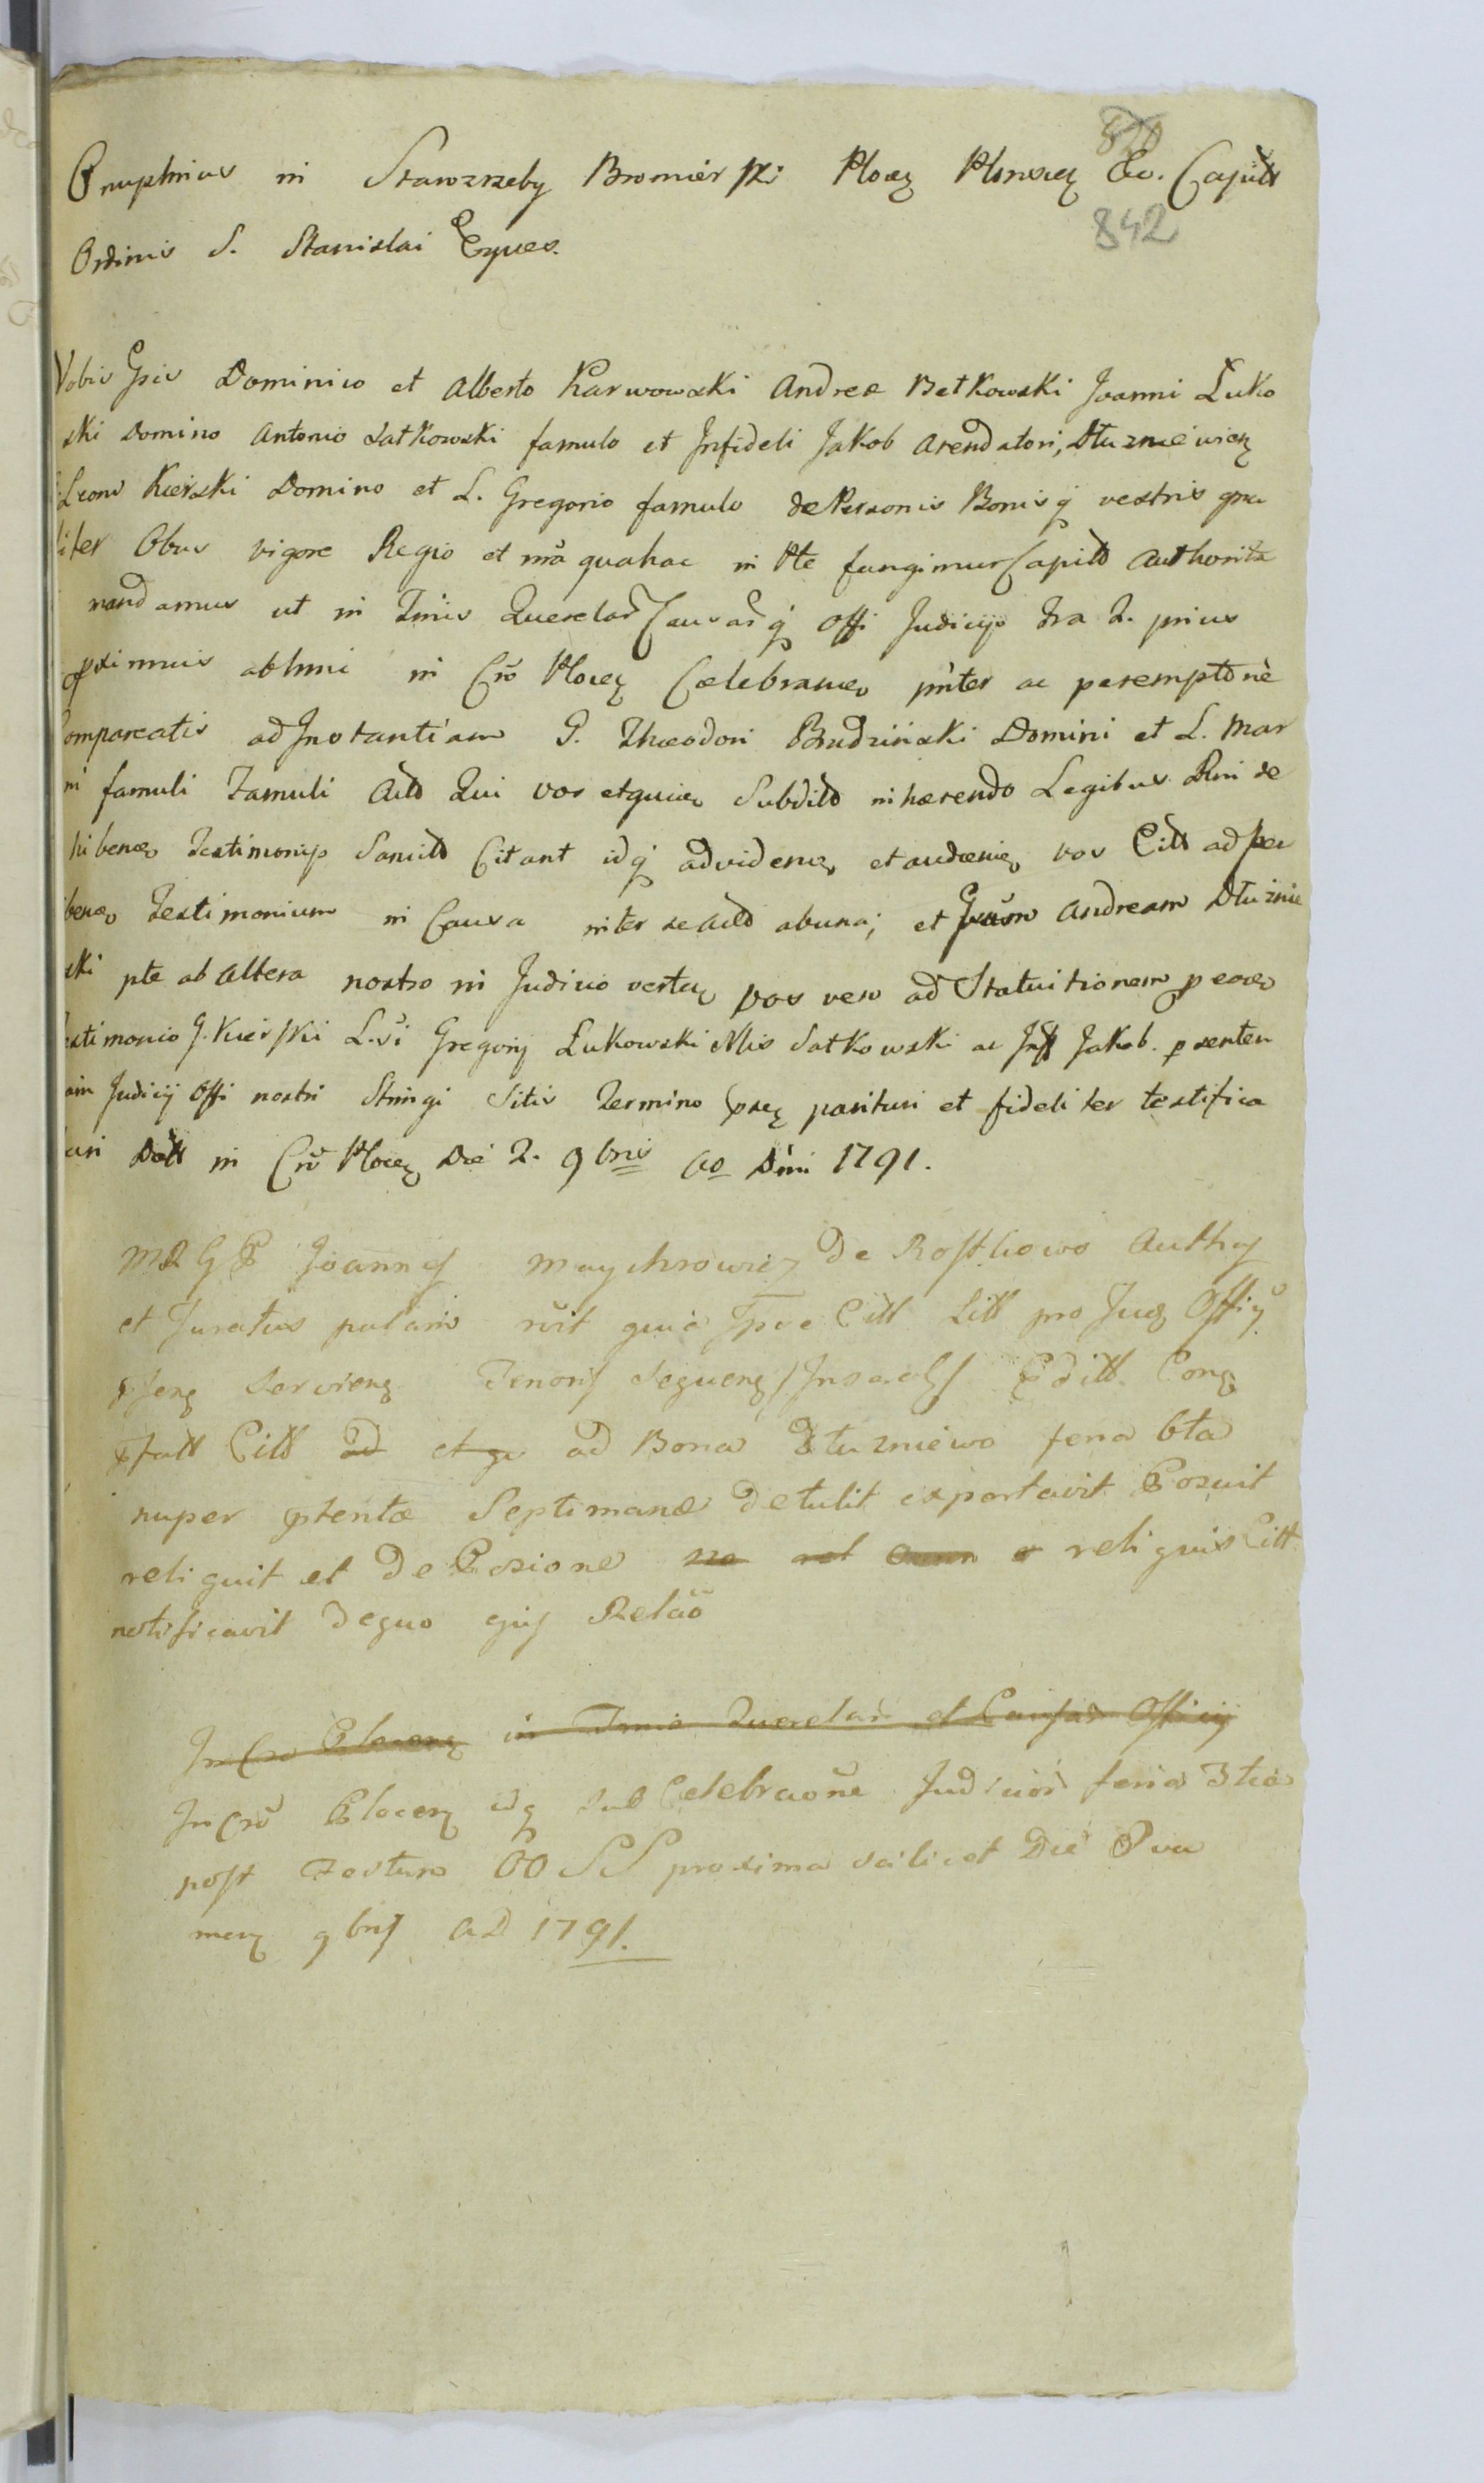 820
Onuphrius in Stawozrzeby Bromierski Plocen Plonscen Eo. Capitt
842
Ordinis S. Stanislai Eques.
Vobis Gsis Dominico et Alberto Karwowski Andrea Betkowski Joanni Łuko
ski Domino Antonio Satkowski famulo et Infideli Jakob Arendatori, Dłuzniewien
Leoni Kierski Domino et L. Gregorio famulo de Personis Bonisq vestris gna
liter Obus vigore Regio et mã qua hac in Pte fungimur Capitt Authorita
mandamus ut in Tmis Querelar Causarq Offi Judicijs Fra 2. prius
proximis abhinc in Crõ Plocen Celebrames pmter ac peremptorie
Compareatis ad Instantiam G. Theodori Brudzinski Domini et L. Mar
ni famuli Famuli Actt Qui vos etquies Subditt inhærendo Legibus Rni de
hibenes Testimonijs Sancitt Citant idq advidenes et audienes vos Citt ad per
benes Testimonium in Causa inter se Actt ab una; et Gsum Andream Dłuznie
ski pte ab Altera nostro in Judicio verten vos vero ad Statuitionem p eores
testimonio G. Kierski L.si Gregorij Łukowski Nlis Satkowski ac Inft Jakob. p senten
am Judicij Offi nostri Stringi Sitis Termino pres parituri et fideliter testifica
turi Datt in Crõ Plocen Die 2. 9bris Ao Dni 1791.
MRGP Joannes Maychrowicz de Rostkowo Authen
et Juratus palam rõit quia Ipse Citt Litt pro Jud Offij
psens Serviens Tenoris Sequens /Inserats/ Editt Cong
pfatt Citt ad et ge ad Bona Dłuzniewo feria 6ta
nuper ptentæ Septimanæ Detulit exportavit Posuit
reliquit et de Posione reliquis Citt
notificavit de quo ejus Relaõ
In Crõ Plocens in Tmis Querelar et Causar Officij
In Crõ Plocens idq sub Celebraone Judicior feria 3tia
post Festum OO SS proxima scilicet Die 8va
mens 9bris AD 1791.